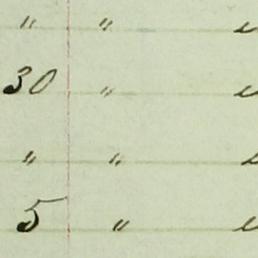 " "
30 "
" "
5 "